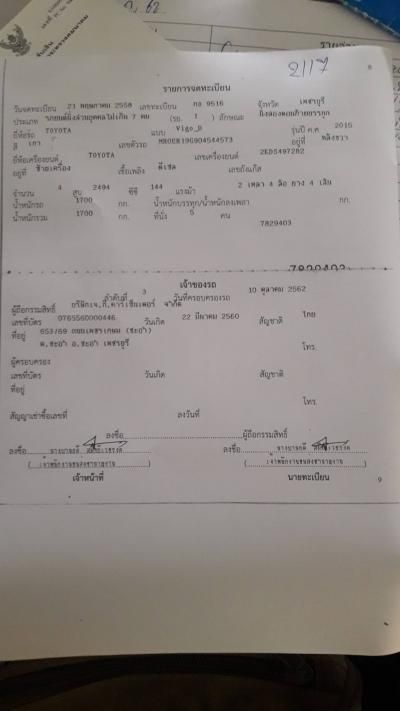 2117
8
รายการจดทะเบียน
วันจดทะเบียน 23 พฤษภาคม 2558 เลขทะเบียน กอ 9516 จังหวัด เพชรบุรี
ประเภท รถยนต์นั่งส่วนบุคคลไม่เกิน 7 คน (รย. 1 ) ลักษณะ นั่งสองตอนท้ายบรรทุก
ยี่ห้อรถ TOYOTA แบบ Vigo_D รุ่นปี ค.ศ 2015
สี เทา เลขตัวรถ MR0ER19G904544573 อยู่ที่ หลังขวา
ยี่ห้อเครื่องยนต์ TOYOTA เลขเครื่องยนต์ 2KDS497282
อยู่ที่ ซ้ายเครื่อง เชื้อเพลิง ดีเซล เลขถังแก๊ส
จำนวน 4 สูบ 2494 ซีซี 144 แรงม้า 2 เพลา 4 ล้อ ยาง 4 เส้น
น้ำหนักรถ 1700 กก. น้ำหนักบรรทุก/น้ำหนักลงเพลา กก.
น้ำหนักรวม 1700 กก. ที่นั่ง 5 คน
7829403
เจ้าของรถ
ลำดับที่ 3 วันที่ครอบครองรถ 10 ตุลาคม 2562
ผู้ถือกรรมสิทธิ์ บริษัทเจ.ที.คาร์เซ็นเตอร์ จำกัด
เลขที่บัตร 0765560000446 วันเกิด 22 มีนาคม 2560 สัญชาติ ไทย
ที่อยู่ 653/69 ถนนเพชรเกษม (ชะอำ)
ต.ชะอำ อ.ชะอำ เพชรบุรี โทร.
ผู้ครอบครอง
เลขที่บัตร วันเกิด สัญชาติ
ที่อยู่
โทร.
สัญญาเช่าซื้อเลขที่ ลงวันที่
ลงชื่อ ผู้ถือกรรมสิทธิ์
ลงชื่อ ลงชื่อ
(เจ้าพนักงานขนส่งชำนาญงาน) (เจ้าพนักงานขนส่งชำนาญงาน)
เจ้าหน้าที่ นายทะเบียน
9